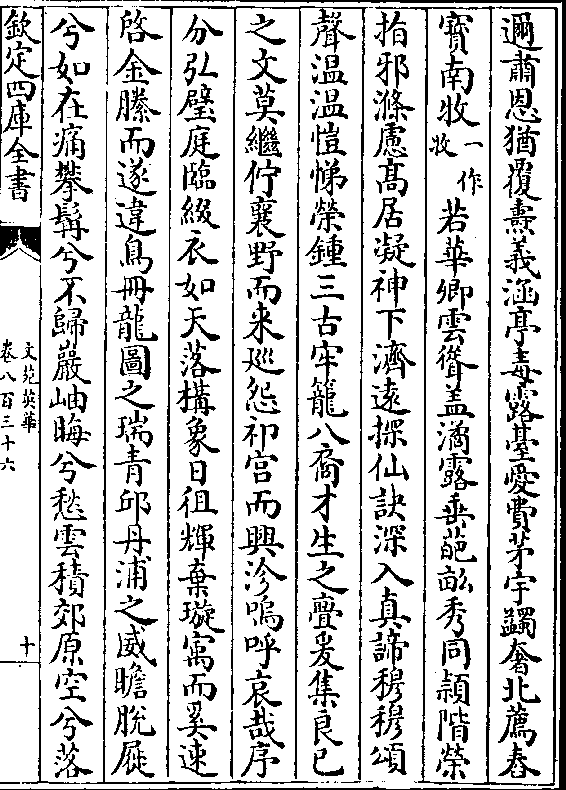 邇肅恩猶覆燾義涵亭毒露䑓愛費茅宇蠲奢北薦舂
寳南牧一作牧若華卿雲聳盖潏露垂葩畝秀同頴階榮
指邪滌慮髙居凝神下濟逺探仙訣深入真諦穆穆頌
聲温温愷悌榮鍾三古牢籠八裔才生之亹爰集良已
之文莫繼佇襄野而来廵怨祁宫而興沴嗚呼哀哉序
分弘璧庭臨綴衣如天落構象日徂輝棄璇寓而奚速
啓金縢而遂違鳥冊龍圖之瑞青邱丹浦之威瞻脱屣
兮如在痛攀髯兮不歸巖岫晦兮愁雲積郊原空兮落
欽定四庫全書
文苑英華
卷八百三十六
十